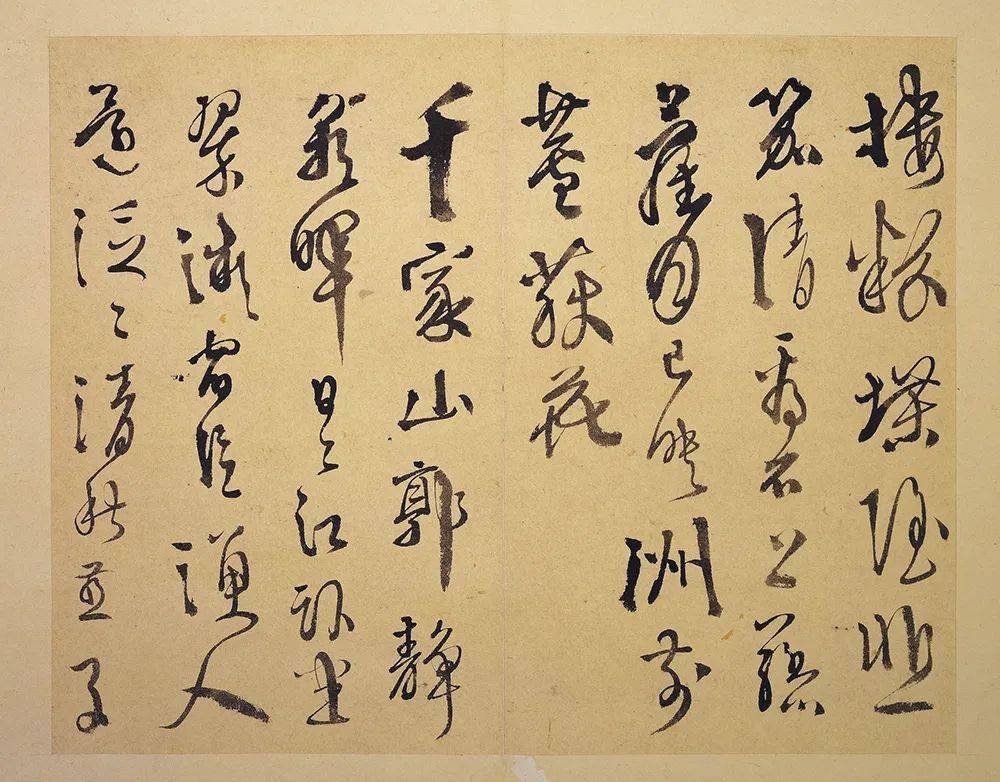 樓粉堞隱悲
笳請看石上藤
蘿月已映洲前
蘆荻花
千家山郭靜
朝暉日〻江坐
翠微宿信漁人
還泛〻清秋燕子